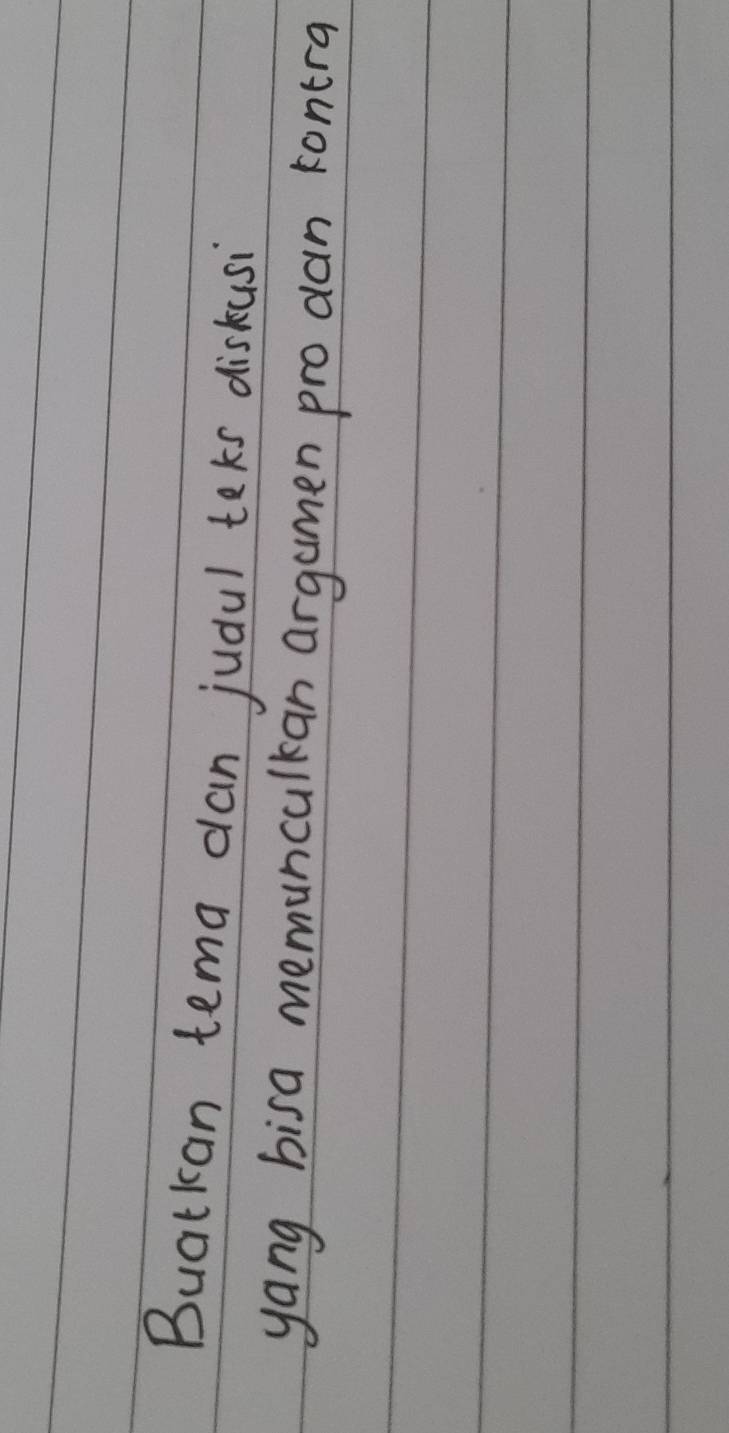 Buatkan tema dan judul teks diskusi
yang bisa memunculkan argumen pro dan kontra